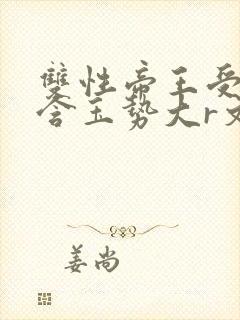 雙性帝王受
含玉势大r文
姜尚